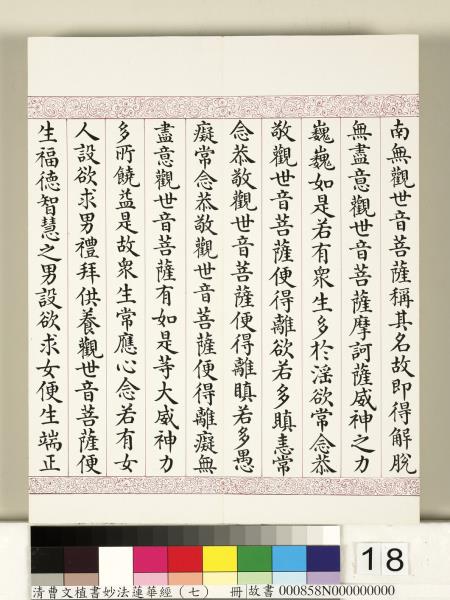 南無觀世音菩薩稱其名故即得解脫
無盡意觀世音菩薩摩訶薩威神之力
巍巍如是若有衆生多於淫欲常念恭
敬觀世音菩薩便得離欲若多瞋恚常
念恭敬觀世音菩薩便得離瞋若多愚
癡常念恭敬觀世音菩薩便得離癡無
盡意觀世音菩薩有如是等大威神力
多所饒益是故衆生常應心念若有女
人設欲求男禮拜供養觀世音菩薩便
生福德智慧之男設欲求女便生端正
18
清曹文植書妙法蓮華經（七） 冊 故書 000858N000000000